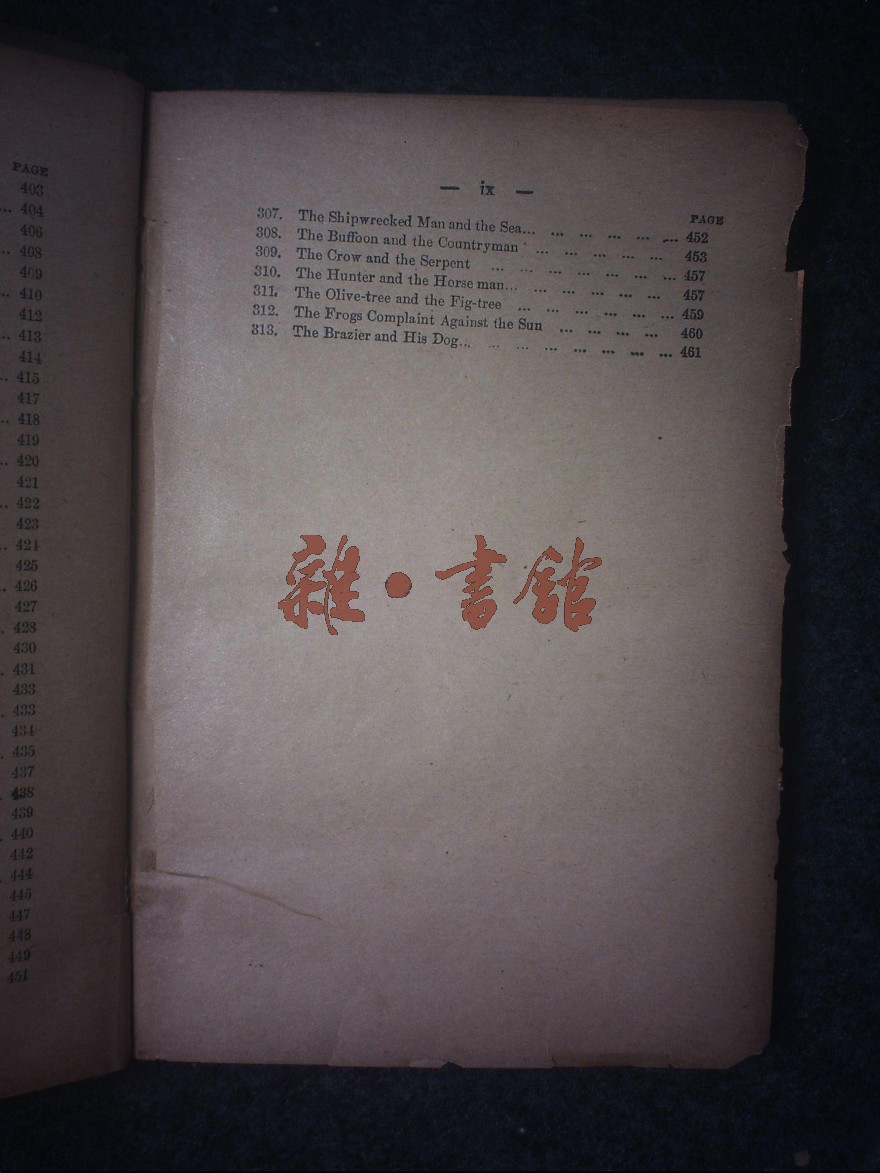 PAGE
403
... 404
406
.. 408
409
.. 410
412
.. 413
414
.. 415
417
.. 418
419
.. 420
421
.. 422
423
.. 424
425
.. 426
427
. 428
430
. 431
433
. 433
434
. 435
437
. 438
439
. 440
442
. 444
445
447
448
449
451
— ix —
PAGE
307. The Shipwrecked Man and the Sea... ... ... ... ... ... 452
308. The Buffoon and the Countryman ... ... ... ... ... 453
309. The Crow and the Serpent ... ... ... ... ... ... ... 457
310. The Hunter and the Horse man... ... ... ... ... ... 457
311. The Olive-tree and the Fig-tree ... ... ... ... ... ... 459
312. The Frogs Complaint Against the Sun ... ... ... ... 460
313. The Brazier and His Dog... ... ... ... ... ... ... ... 461
雜·書館